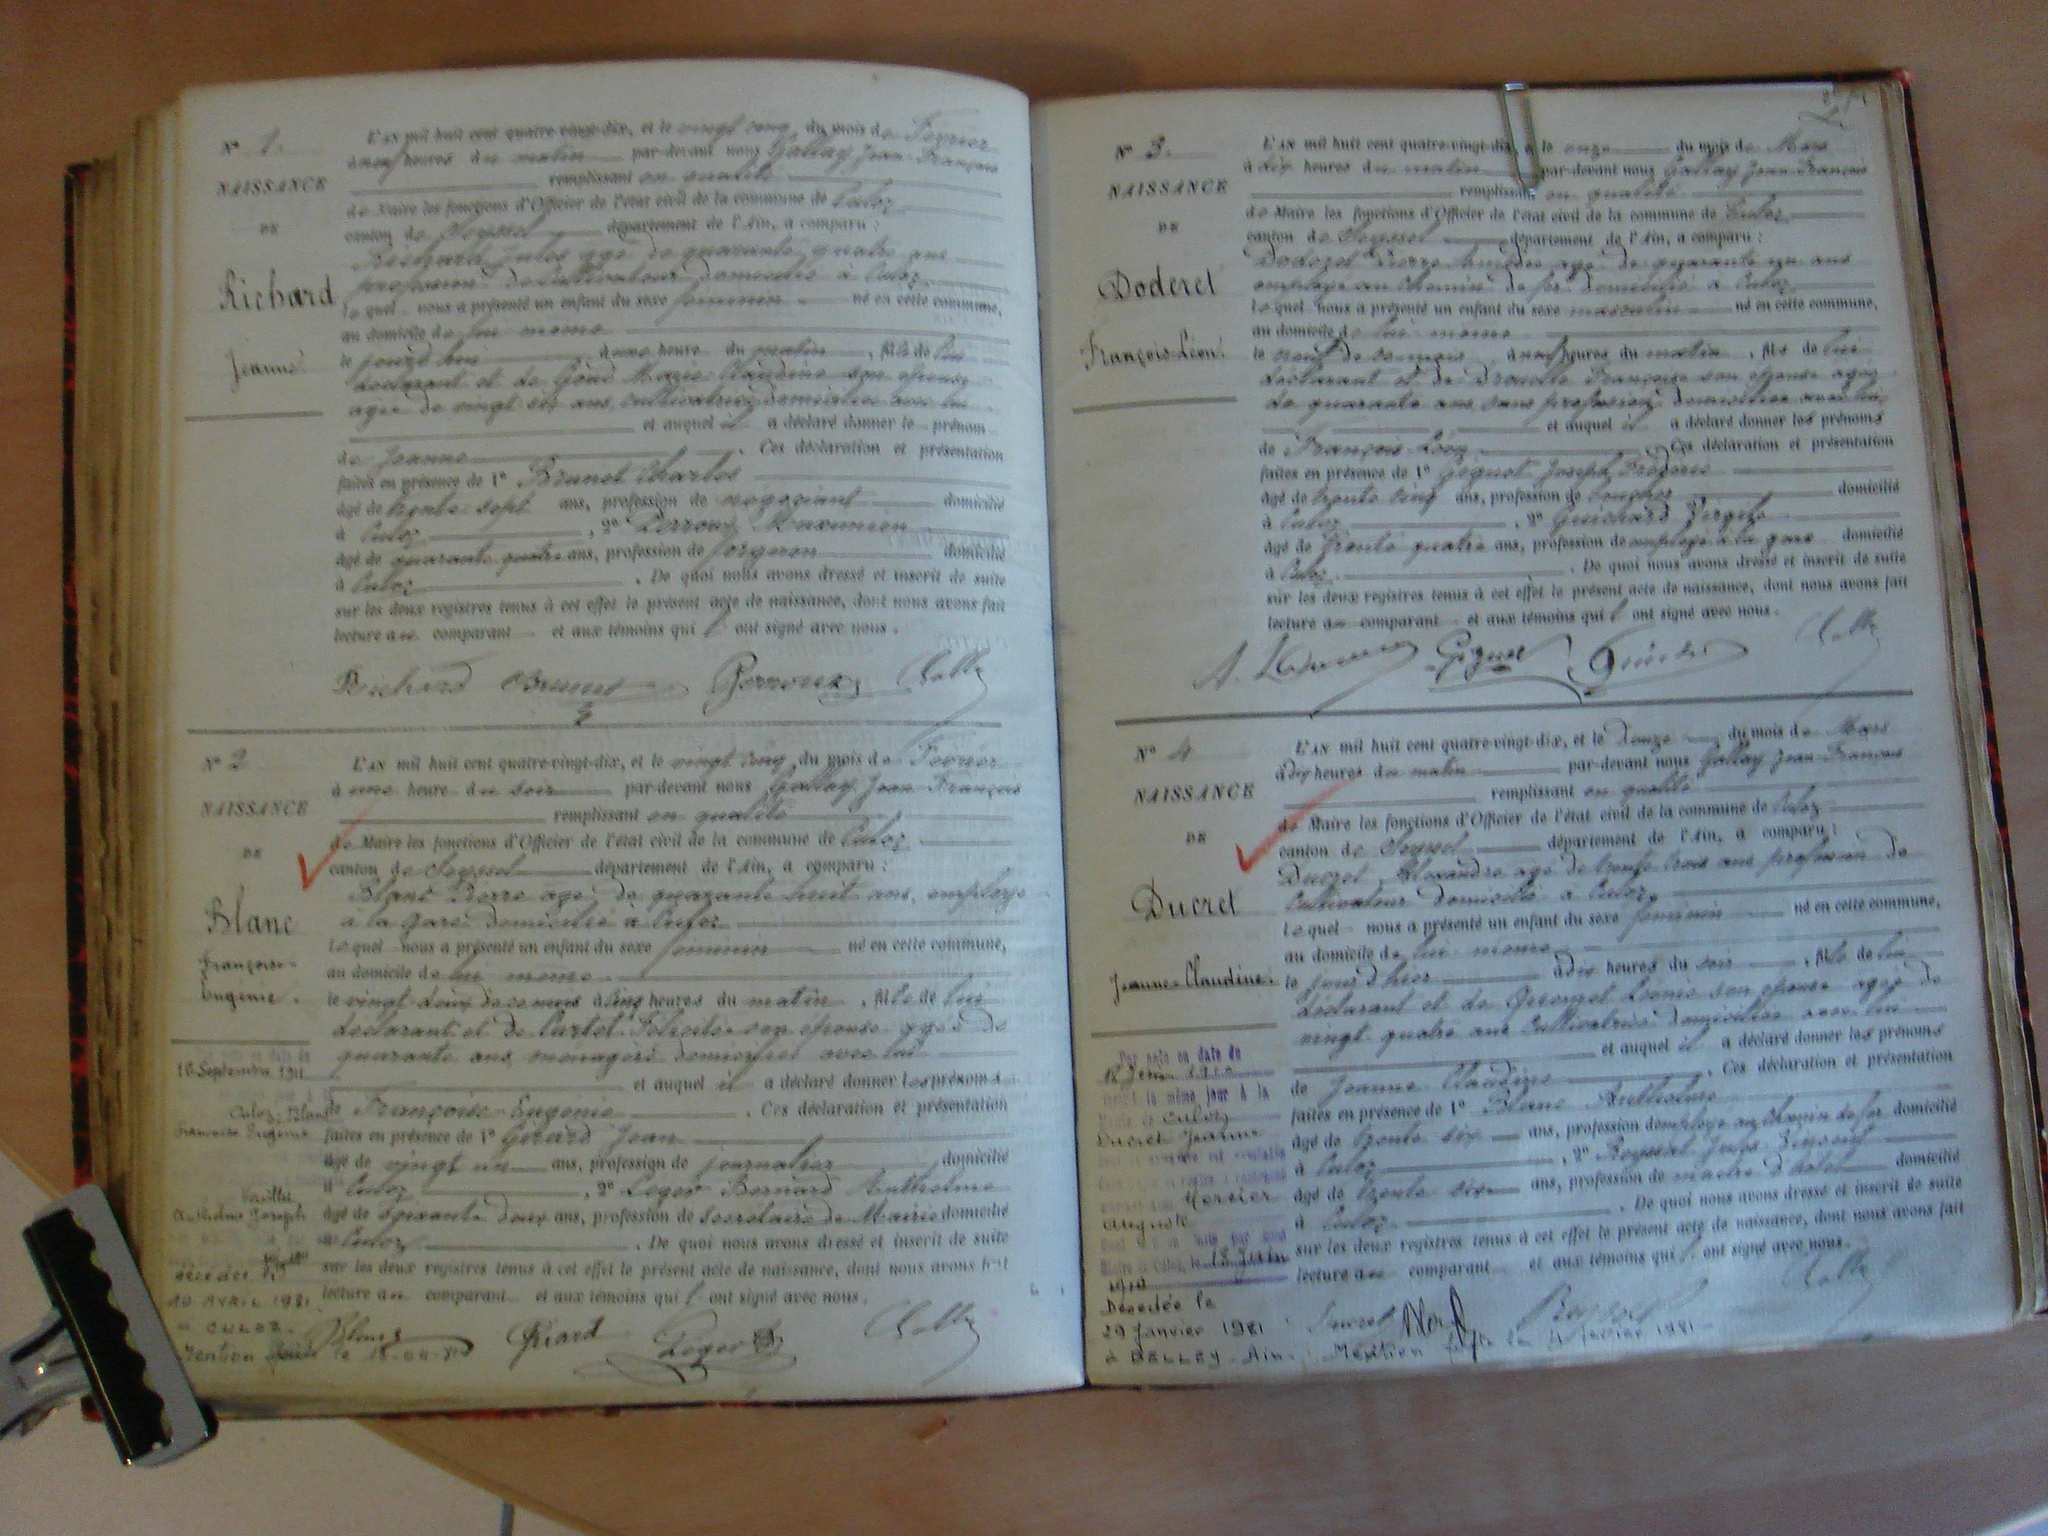 N° 1.
NAISSANCE
DE
Richard
Jeanne
L'AN mil huit cent quatre-vingt-dix, et le vingt cinq du mois de Février
à neuf heures du matin par-devant nous Gallay Jean François
remplissant en qualité
de Maire les fonctions d'Officier de l'état civil de la commune de Culoz
canton de Seyssel département de l'Ain, a comparu :
Richard Jules agé de quarante quatre ans
profession de cultivateur domicilié à Culoz
lequel nous a présenté un enfant du sexe féminin né en cette commune,
au domicile de lui même
le jourd'hui heure du matin, fille de lui
déclarant et de Marie Claudine son épouse
agée de vingt six ans, cultivatrice domiciliée avec lui
et auquel il a déclaré donner le prénom
de Jeanne. Ces déclaration et présentation
faites en présence de 1° Brunet Charles
âgé de trente sept ans, profession de négociant domicilié
à Culoz, 2° Perroux
âgé de quarante quatre ans, profession de forgeron domicilié
à Culoz. De quoi nous avons dressé et inscrit de suite
sur les deux registres tenus à cet effet le présent acte de naissance, dont nous avons fait
lecture au comparant et aux témoins qui l' ont signé avec nous.
Richard Brunet Perroux
N° 2
NAISSANCE
DE
Blanc
Françoise-
Eugénie.
L'AN mil huit cent quatre-vingt-dix, et le vingt cinq du mois de Février
à une heure du soir par-devant nous Gallay Jean François
remplissant en qualité
de Maire les fonctions d'Officier de l'état civil de la commune de Culoz
canton de Seyssel département de l'Ain, a comparu :
Blanc Pierre agé de quarante huit ans, employé
à la gare domicilié à Culoz
lequel nous a présenté un enfant du sexe féminin né en cette commune,
au domicile de lui même
le vingt deux de ce mois à cinq heures du matin, fille de lui
déclarant et de Curtet son épouse agée de
quarante ans, ménagère domiciliée avec lui
et auquel il a déclaré donner les prénoms
de Françoise Eugénie. Ces déclaration et présentation
faites en présence de 1° Jean
âgé de vingt un ans, profession de journalier domicilié
à Culoz, 2° Leger Bernard Anthelme
âgé de soixante deux ans, profession de Secrétaire de Mairie domicilié
à Culoz. De quoi nous avons dressé et inscrit de suite
sur les deux registres tenus à cet effet le présent acte de naissance, dont nous avons fait
lecture au comparant et aux témoins qui l' ont signé avec nous.
16 Septembre 1911
Culoz Blanc
Françoise Eugénie
Joseph
décédée
10 AVRIL 1981
à CULOZ.
Mention
Blanc Leger
N° 3.
NAISSANCE
DE
Doderet
François-Léon.
L'AN mil huit cent quatre-vingt-dix, et le onze du mois de Mars
à dix heures du matin par-devant nous Gallay Jean François
remplissant en qualité
de Maire les fonctions d'Officier de l'état civil de la commune de Culoz
canton de Seyssel département de l'Ain, a comparu :
Doderet Pierre agé de quarante un ans
employé au chemin de fer domicilié à Culoz
lequel nous a présenté un enfant du sexe masculin né en cette commune,
au domicile de lui même
le neuf de ce mois à neuf heures du matin, fils de lui
déclarant et de Françoise son épouse agée
de quarante ans, sans profession, domiciliée avec lui
et auquel il a déclaré donner les prénoms
de François Léon. Ces déclaration et présentation
faites en présence de 1° Giguet Joseph
âgé de trente cinq ans, profession de boucher domicilié
à Culoz, 2° Guichard Virgile
âgé de trente quatre ans, profession de employé à la gare domicilié
à Culoz. De quoi nous avons dressé et inscrit de suite
sur les deux registres tenus à cet effet le présent acte de naissance, dont nous avons fait
lecture au comparant et aux témoins qui l' ont signé avec nous.
Giguet
N° 4
NAISSANCE
DE
Ducret
Jeanne-Claudine.
L'AN mil huit cent quatre-vingt-dix, et le douze du mois de Mars
à dix heures du matin par-devant nous Gallay Jean François
remplissant en qualité
de Maire les fonctions d'Officier de l'état civil de la commune de Culoz
canton de Seyssel département de l'Ain, a comparu :
Ducret Alexandre agé de trente trois ans profession de
Cultivateur domicilié à Culoz
lequel nous a présenté un enfant du sexe féminin né en cette commune,
au domicile de lui même
le jour d'hier à dix heures du soir, fille de lui
déclarant et de Léonie son épouse agée de
vingt quatre ans Cultivatrice domiciliée avec lui
et auquel il a déclaré donner les prénoms
de Jeanne Claudine. Ces déclaration et présentation
faites en présence de 1° Blanc Anthelme
âgé de trente six ans, profession d'employé au chemin de fer domicilié
à Culoz, 2° Jules
âgé de trente six ans, profession de maître d'hôtel domicilié
à Culoz. De quoi nous avons dressé et inscrit de suite
sur les deux registres tenus à cet effet le présent acte de naissance, dont nous avons fait
lecture au comparant et aux témoins qui l' ont signé avec nous.
Par note en date du
18 Juin 1910
le même jour à la
Culoz
Ducret Jeanne
Mercier
Auguste
18 Juin
1910
Décédée le
29 Janvier 1981
à BELLEY - Ain - Mention le 4 février 1981
Ducret